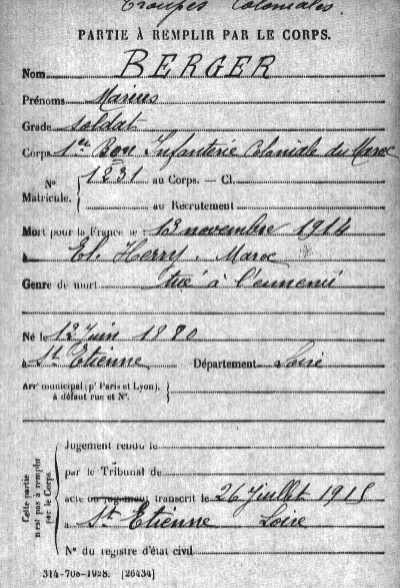 Troupes Coloniales.
PARTIE À REMPLIR PAR LE CORPS.
Nom BERGER
Prénoms Marius
Grade soldat
Corps 1er Bon Infanterie Coloniale du Maroc
No Matricule. 1231 au Corps. — Cl.
au Recrutement
Mort pour la France le 13 novembre 1914
à El Herry. Maroc
Genre de mort tué à l'ennemi
Né le 12 Juin 1880
à St Etienne Département Loire
Arrt municipal (pr Paris et Lyon), à défaut rue et No.
Cette partie n'est pas à remplir par le Corps.
Jugement rendu le
par le Tribunal de
acte ou jugement transcrit le 26 Juillet 1915
à St Etienne Loire
No du registre d'état civil
314-708-1928. [26434]